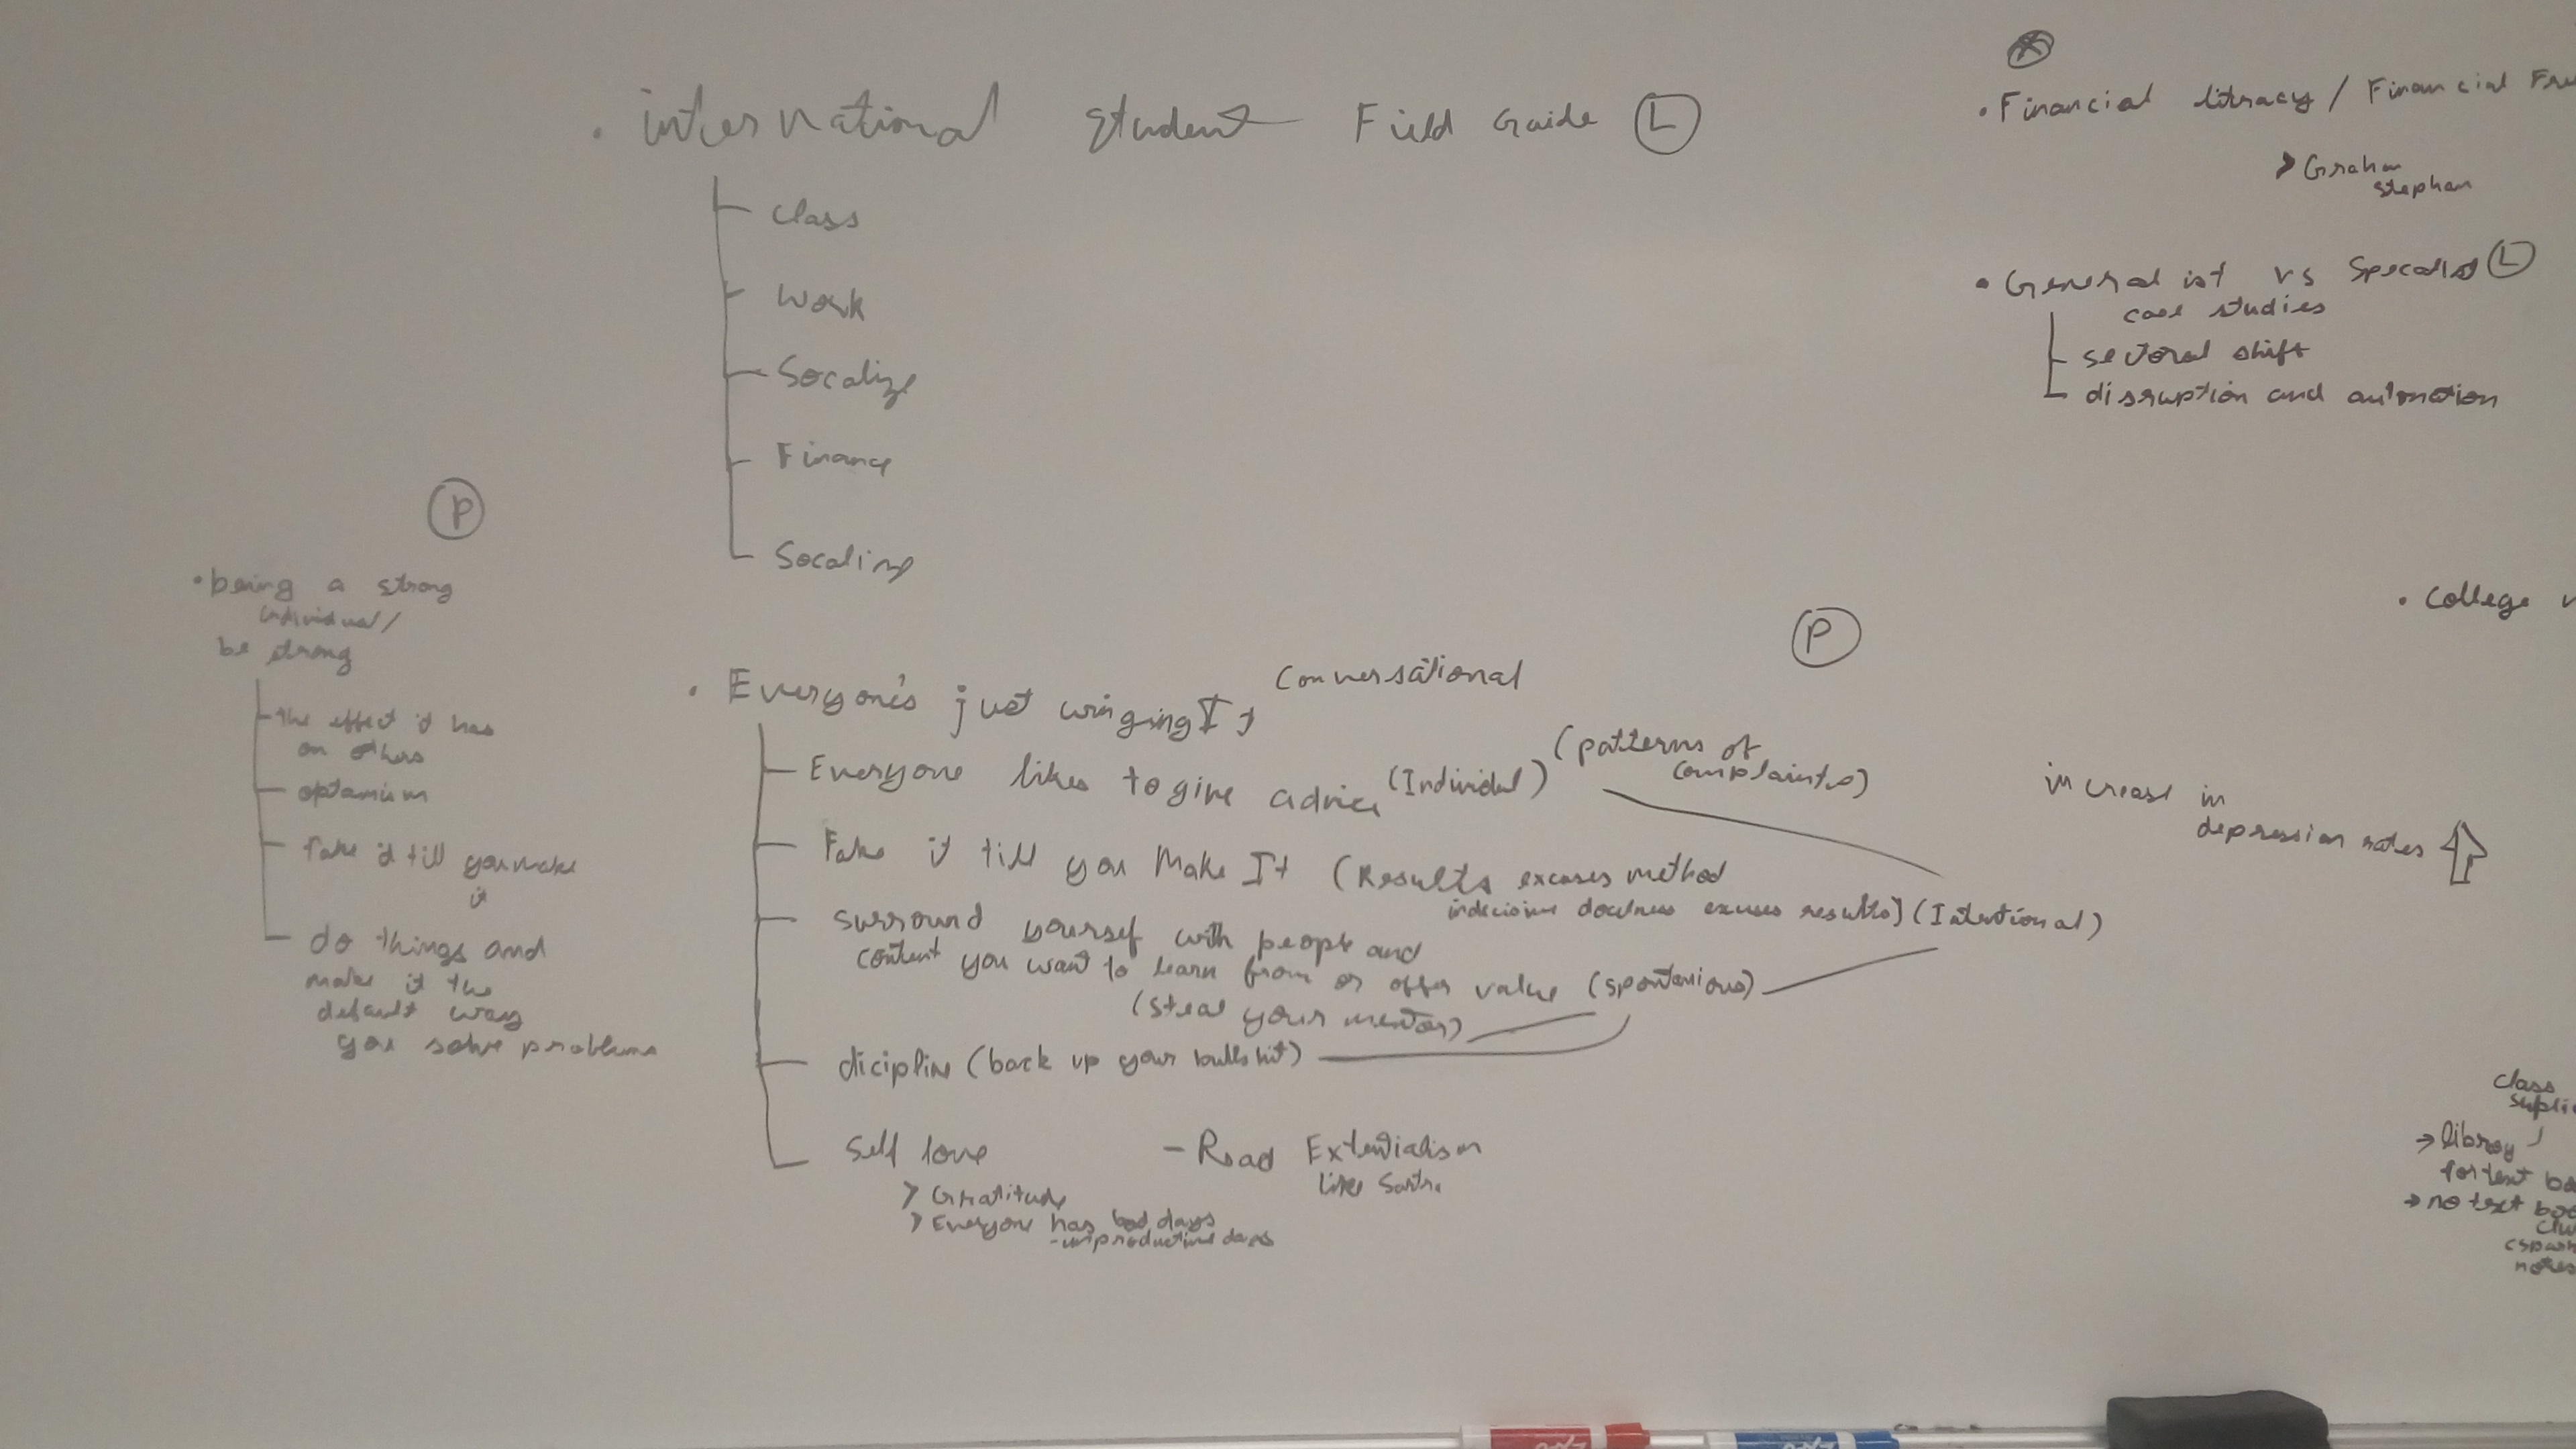 . international student Field Guide L
class
work
Socalize
Finance
Socaling
P
• being a strong
individual/
be strong
the effect it has
on others
optamism
fake it till you make
it
do things and
make it the
default way
you solve problems
P
. Everyone's just winging It Conversational
Everyone likes to give advice (Individul) (patterns of
complaints)
Fake it till you Make It (Results excuses method
indecisive excuses results) (Intentional)
surround yoursef with people and
content you want to learn from or offer value (spontanious)
(steal your mentor)
dicipline (back up your bullshit)
Self love
> Gratitude
> Everyone has bad days
- unproductive days
- Read Extentialism
like Sartre
• Financial litracy / Financial Fre
> Graham
Stephan
• Generalist vs Specalist L
case studies
sectoral shift
disruption and automation
• college v
increase in
depression rates
class
suplie
→ library
for text bo
→ no text boo
notes